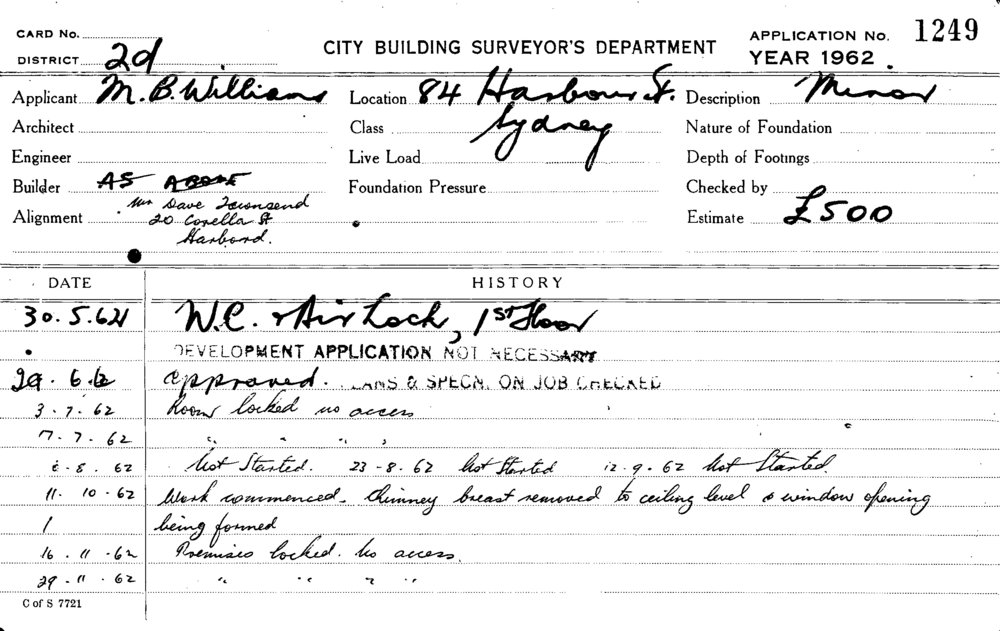 CARD No.
CITY BUILDING SURVEYOR'S DEPARTMENT
APPLICATION No. 1249
DISTRICT 2d
YEAR 1962.
Applicant M.B. Williams Location 84 Harbour St. Description Minor
Architect Class Sydney Nature of Foundation
Engineer Live Load Depth of Footings
Builder AS ABOVE Foundation Pressure Checked by
Mr Dave Townsend
Alignment 20 Corella St Estimate £500
Harbord.
DATE HISTORY
30.5.62 W.C. & Air Lock, 1st Floor
DEVELOPMENT APPLICATION NOT NECESSARY
29.6.62 approved. PLANS & SPECN. ON JOB CHECKED
3.7.62 Room locked no access
17.7.62 " " " "
8.62 Not Started. 23-8.62 Not Started 12.9.62 Not Started.
11.10.62 Work commenced. Chimney breast removed to ceiling level & window opening
being formed
16.11.62 Premises locked. No access.
29.11.62 " " " "
C of S 7721